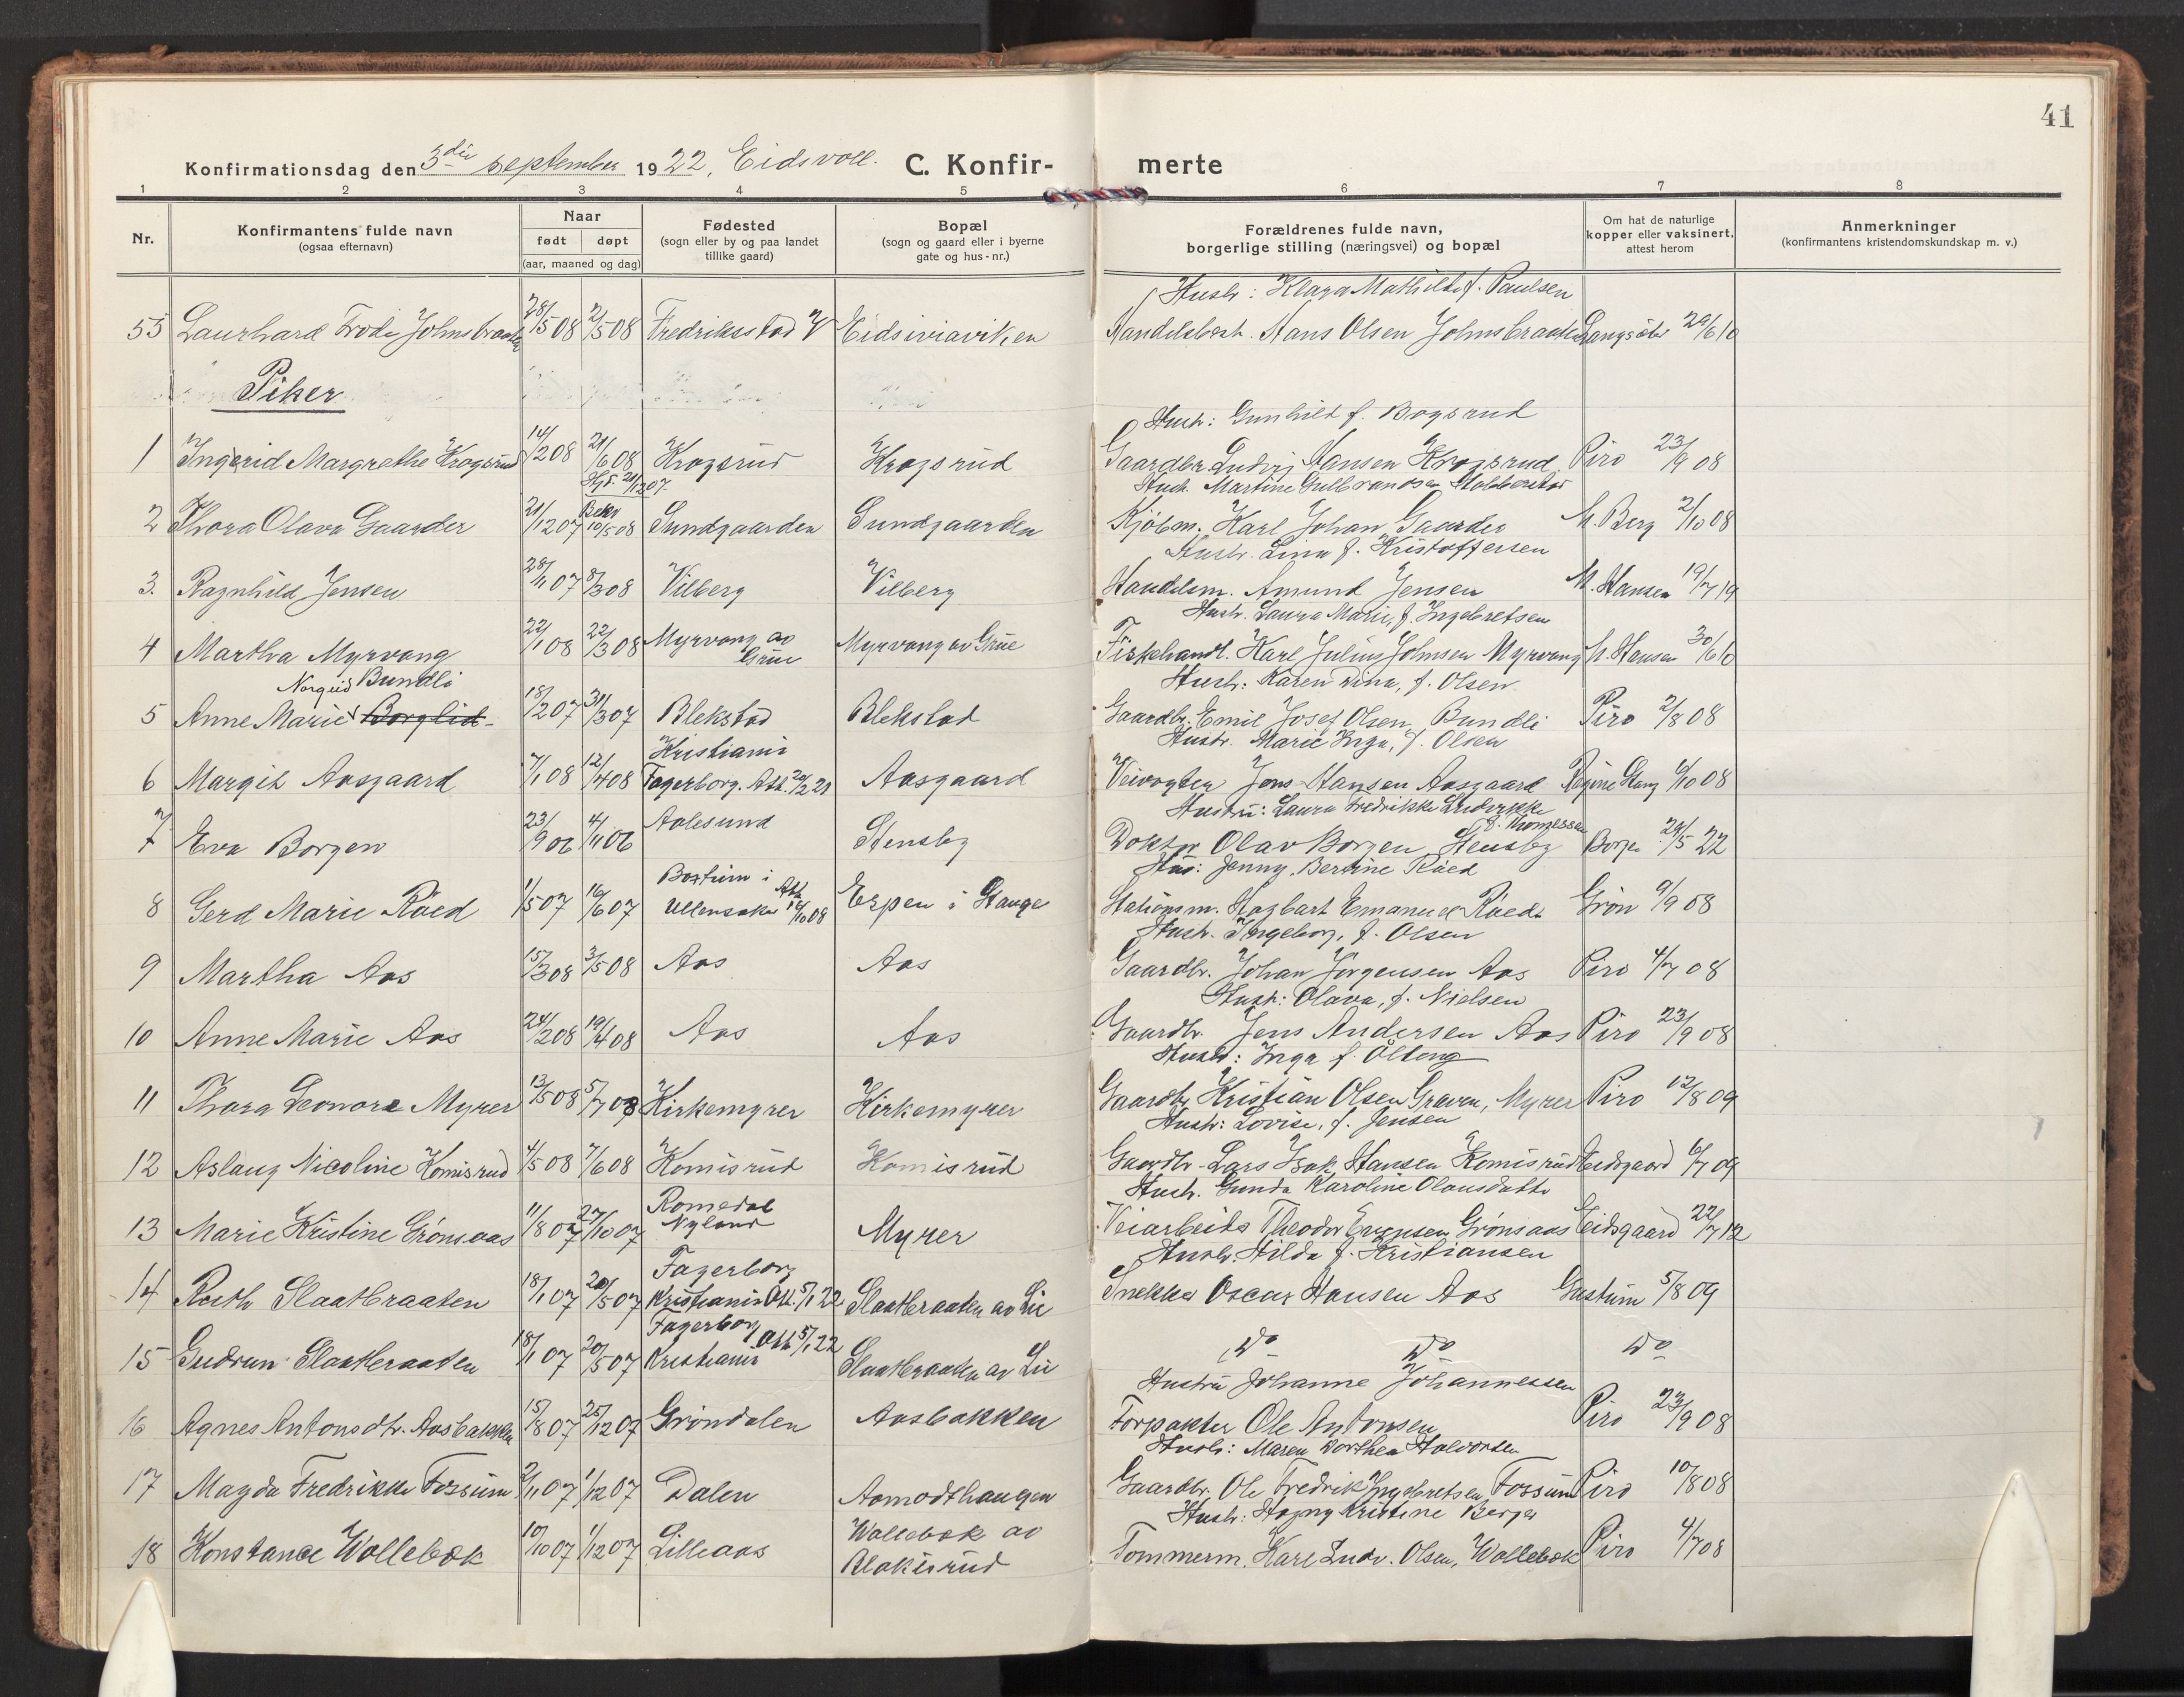 41
Konfirmationsdag den 3die september 1922, Eidsvoll. C. Konfir- merte
1 2 3 4 5 6 7 8
Nr. Konfirmantens fulde navn (ogsaa efternavn) Naar født døpt (aar, maaned og dag) Fødested (sogn eller by og paa landet tillike gaard) Bopæl (sogn og gaard eller i byerne gate og hus-nr.) Forældrenes fulde navn, borgerlige stilling (næringsvei) og bopæl Om hat de naturlige kopper eller vaksinert, attest herom Anmerkninger (konfirmantens kristendomskundskap m. v.)
Hustr: Klara Mathilde f. Paulsen
55 Frode Johnsbraaten 28/5 08 Fredriksstad V Hans Olsen Johnsbraaten 29/6 10
Piker
Hustr: Gunhild f. Bogsrud
1 Ingerid Margrethe Krogsrud 14/2 08 21/6 08 Krogsrud Krogsrud Gaardbr. Ludvig Hansen Krogsrud Piro 23/9 08
Hustr. Martine Gulbrandsen
2 Thora Olava Gaarder 21/12 07 10/5 08 Sundgaarden Sundgaarden Kjøbm. Karl Johan Gaarder M. Berg 2/10 08
Hustr. Lina f. Kristoffersen
3. Ragnhild Jensen 28/11 07 8/3 08 Vilberg Vilberg Handelsm. Amund Jensen M. Hansen 19/7 19
Hustr. Laura Marie, f. Ingebretsen
4 Martha Myrvang 22/1 08 22/3 08 Myrvang av Grue Myrvang av Grue Fiskehandl. Karl Julius Johnsen Myrvang M. Hansen 30/6 10
Norgeid Bundli
Hustr: Karen Dina, f. Olsen
5 Anne Marie Borglid 18/2 07 31/3 07 Blekstad Blekstad Gaardbr. Emil Josef Olsen Bundli Piro 2/8 08
Hustr. Marie Inga, f. Olsen
Kristiania
6 Margit Aasgaard 7/1 08 12/4 08 Fagerborg. Att. 20/2 21 Aasgaard Veivogter Jens Hansen Aasgaard 6/10 08
Hustru: Laura Fredrikke Ludvikke f. Thomessen
7 Eva Borgen 23/9 06 4/11 06 Aalesund Stensby Doktor Olav Borgen Stensby Borgen 29/5 22
Hus: Jenny Bertine Råed
8 Gerd Marie Råed 1/5 07 16/6 07 i Ullensaker Att. 14/10 08 Espen i Stange Stationsm. Hagbart Emanuel Råed Grøn 9/9 08
Hustr. Ingeborg, f. Olsen
9 Martha Aas 15/3 08 3/5 08 Aas Aas Gaardbr. Johan Jørgensen Aas Piro 4/7 08
Hustr: Olava, f. Nielsen
10 Anne Marie Aas 24/2 08 19/4 08 Aas Aas Gaardbr. Jens Andersen Aas Piro 23/9 08
Hustr: Inga f.
11 Thora Leonore Myrer 13/5 08 5/7 08 Kirkemyrer Kirkemyrer Gaardbr Kristian Olsen Graven, Myrer Piro 12/8 09
Hustr: Lovise, f. Jensen
12 Aslaug Nicoline Komisrud 4/5 08 7/6 08 Komisrud Komisrud Gaardbr. Lars Isak Hansen Komisrud Eidsgaard 6/7 09
Hustr. Gunda Karoline Olausdatter
13 Marie Kristine Grønsaas 11/8 07 27/10 07 Romedal Nyland Myrer Veiarbeider Theodor Evensen Grønsaas Eidsgaard 22/7 12
Hustr. Hilda f. Kristiansen
14 Ruth Slaatbraaten 18/1 07 20/5 07 Fagerborg Kristiania Att. 5/1 22 Slaatbraaten av Lie Snekker Oscar Hansen Aas Gustum 5/8 09
15 Gudrun Slaatbraaten 18/1 07 20/5 07 Fagerborg Kristiania Att 5/1 22 Slaatbraaten av Lie Do Do Do
Hustru Johanne Johannessen
16 Agnes Antonsdtr. Aasbakken 15/8 07 25/12 07 Grøndalen Aasbakken Forpakter Ole Antonsen Piro 23/9 08
Hustr: Maren Dorthea Halvorsen
17 Magda Fredrikke Fossum 2/11 07 1/12 07 Dalen Aamodthaugen Gaardbr. Ole Fredrik Ingebretsen Fossum Piro 10/8 08
Hustr: Hagny Kristine Berger
18 Konstance Wollebæk 10/10 07 1/12 07 Lilleaas Wollebæk av Blakisrud Tommerm. Karl Ludv. Olsen, Wollebæk Piro 4/7 08